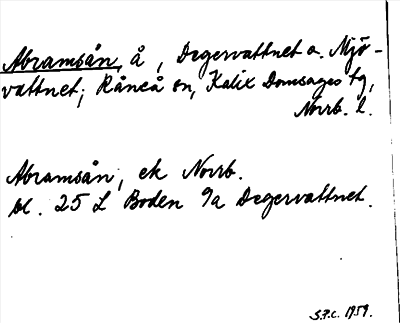 Abramsån, å, Degervattnet o. Mjö-
vattnet; Råneå sn, Kalix Domsagas tg,
Norrb. l.
Abramsån, ek Norrb.
bl. 25 L Boden 9a Degervattnet.
S.F.C. 1959.